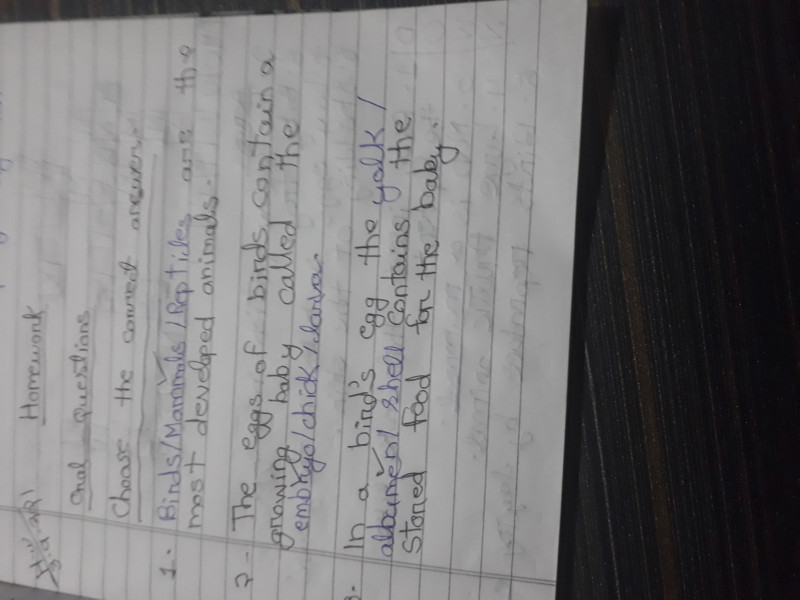 Homework
Oral Questions
Choose the correct answer.
1. Birds/Mammals/Reptiles are the
most developed animals.
2- The eggs of birds contain a
growing baby called the
embryo/chick/larva.
3. In a bird's egg the yolk/
albumen/shell contains the
stored food for the baby.